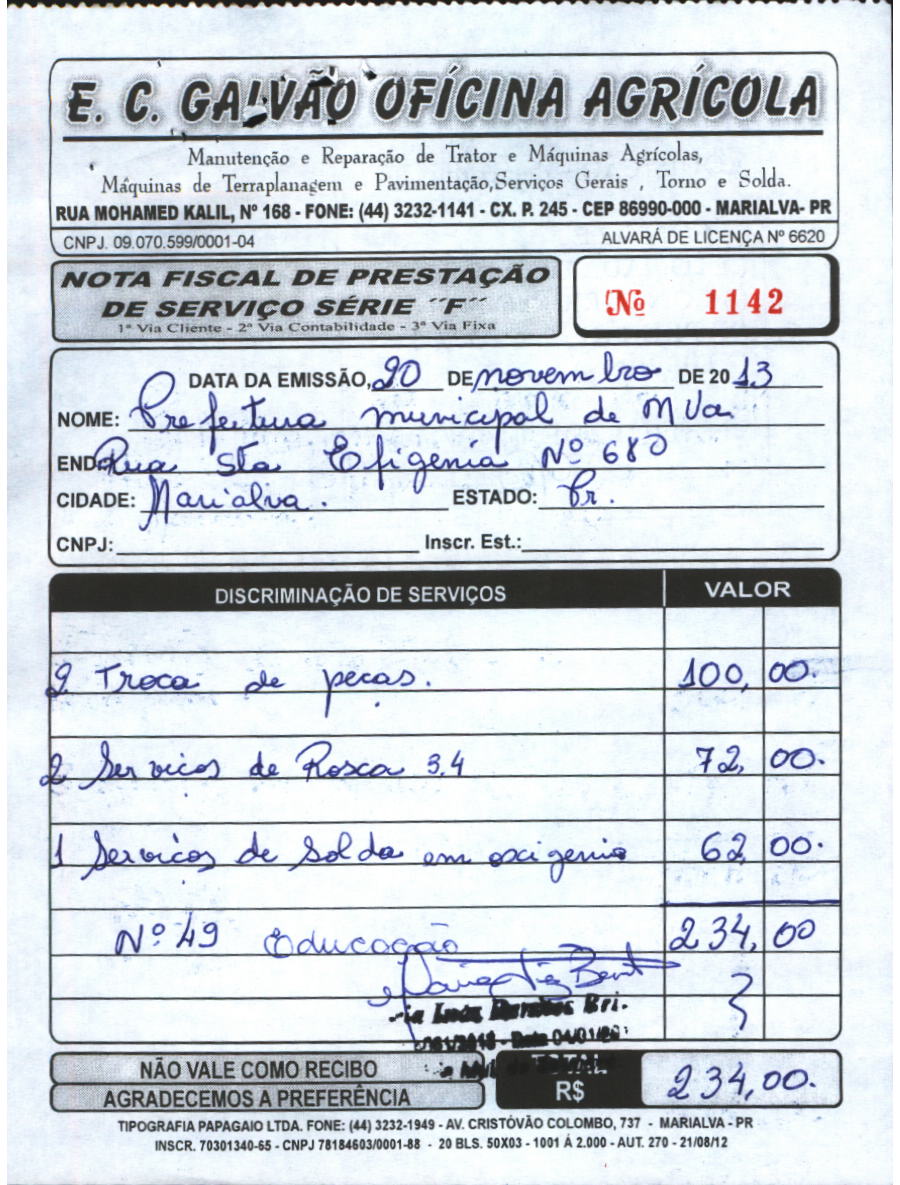 E. C. GALVÃO OFÍCINA AGRÍCOLA
Manutenção e Reparação de Trator e Máquinas Agrícolas,
Máquinas de Terraplanagem e Pavimentação,Serviços Gerais , Torno e Solda.
RUA MOHAMED KALIL, Nº 168 - FONE: (44) 3232-1141 - CX. P. 245 - CEP 86990-000 - MARIALVA- PR
CNPJ. 09.070.599/0001-04 ALVARÁ DE LICENÇA Nº 6620
NOTA FISCAL DE PRESTAÇÃO
DE SERVIÇO SÉRIE "F"
1ª Via Cliente - 2ª Via Contabilidade - 3ª Via Fixa
Nº 1142
DATA DA EMISSÃO, 20 DE novembro DE 2013
NOME: Prefeitura municipal de M Va.
END. Rua Sta Efigenia Nº 680
CIDADE: Marialva. ESTADO: Pr.
CNPJ: Inscr. Est.:
DISCRIMINAÇÃO DE SERVIÇOS VALOR
2 Troca de peças. 100,00.
2 Servicos de Rosca 3,4 72,00.
1 Servicos de Solda em oxigenio 62,00.
Nº 49 Educação 234,00
NÃO VALE COMO RECIBO
AGRADECEMOS A PREFERÊNCIA
R$ 234,00.
TIPOGRAFIA PAPAGAIO LTDA. FONE: (44) 3232-1949 - AV. CRISTÓVÃO COLOMBO, 737 - MARIALVA - PR
INSCR. 70301340-65 - CNPJ 78184603/0001-88 - 20 BLS. 50X03 - 1001 Á 2.000 - AUT. 270 - 21/08/12